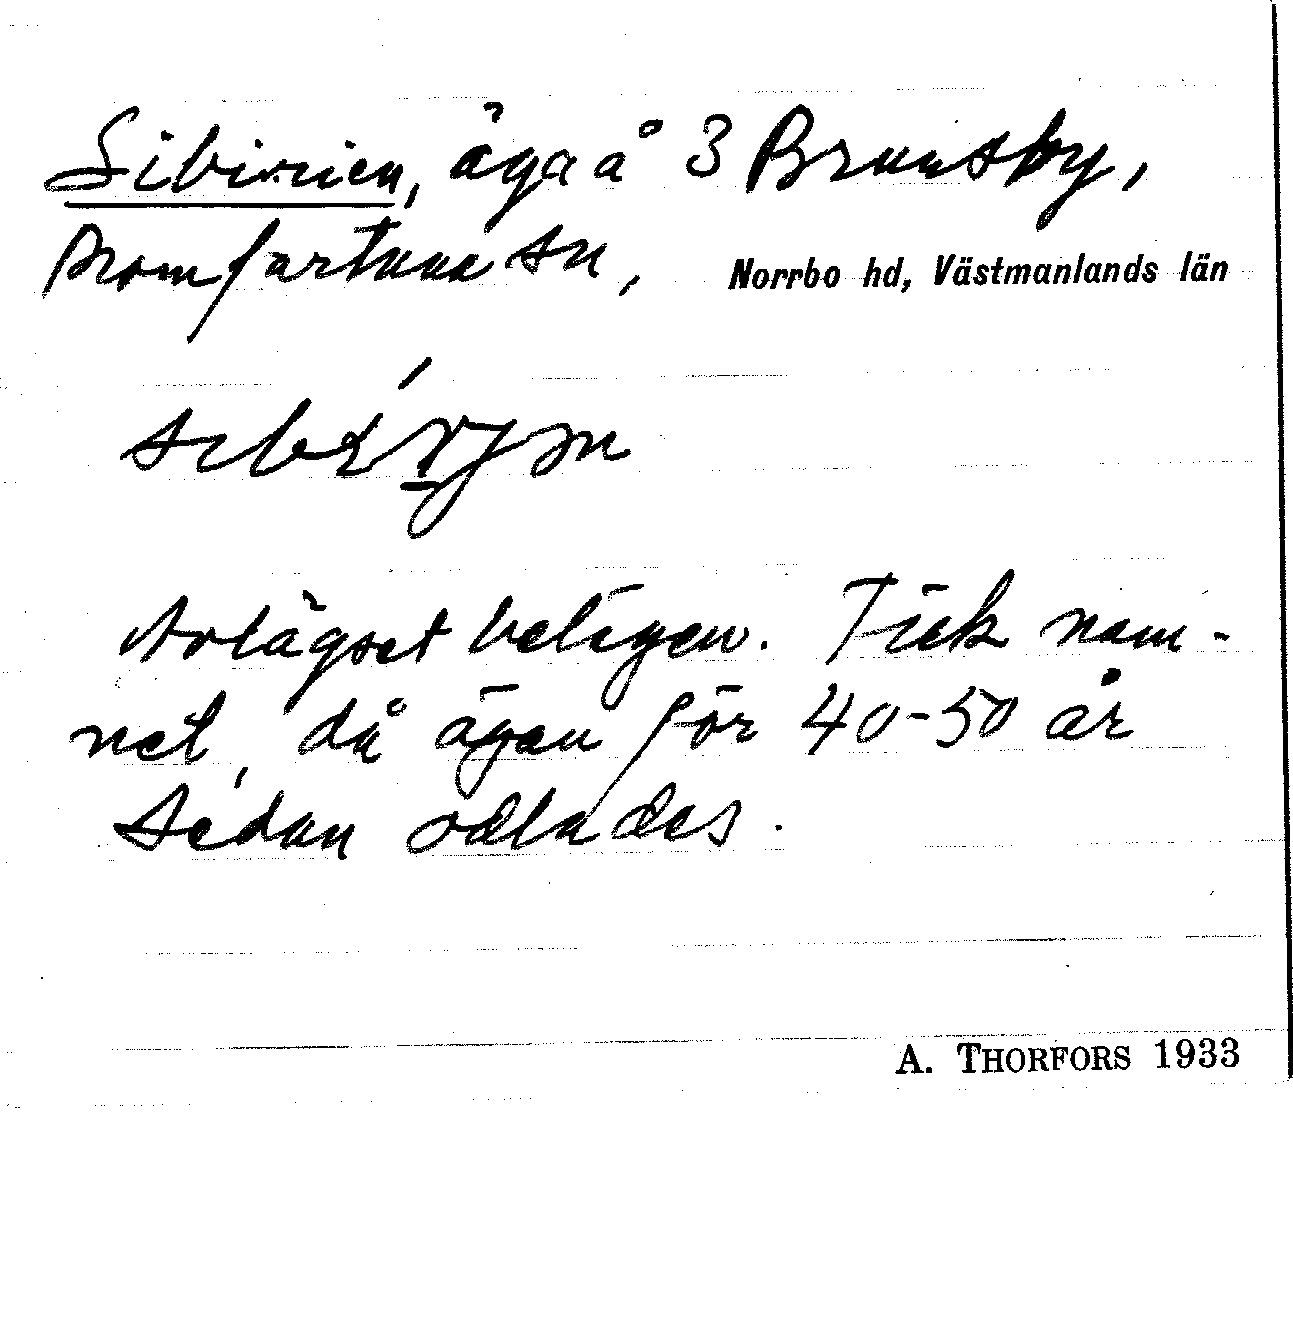 Sibirien, äga å 3 Brunsby,
Romfartuna sn, Norrbo hd, Västmanlands län
Avlägset belägen. Fick nam-
net, då ägan för 40-50 år
sedan odlades.
A. THORFORS 1933